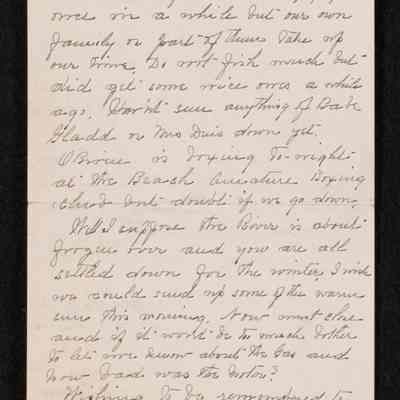 once in a while but our own
family or part of them take up
our time. Do not fish much but
did get some nice ones a while
ago. Havn't seen anything of Babe
Gladd or Mrs Duis down yet.
O'Brien is boxing to-night
at the Beach Boxing
Club but doubt if we go down.
Well I suppose the River is about
frozen over and you are all
settled down for the winter. I wish
we could send up some of the warm
sun this morning. Now must close
and if it would be too much bother
to let me know about the Gas and
how bad was the motor?
Wishing to be remembered to